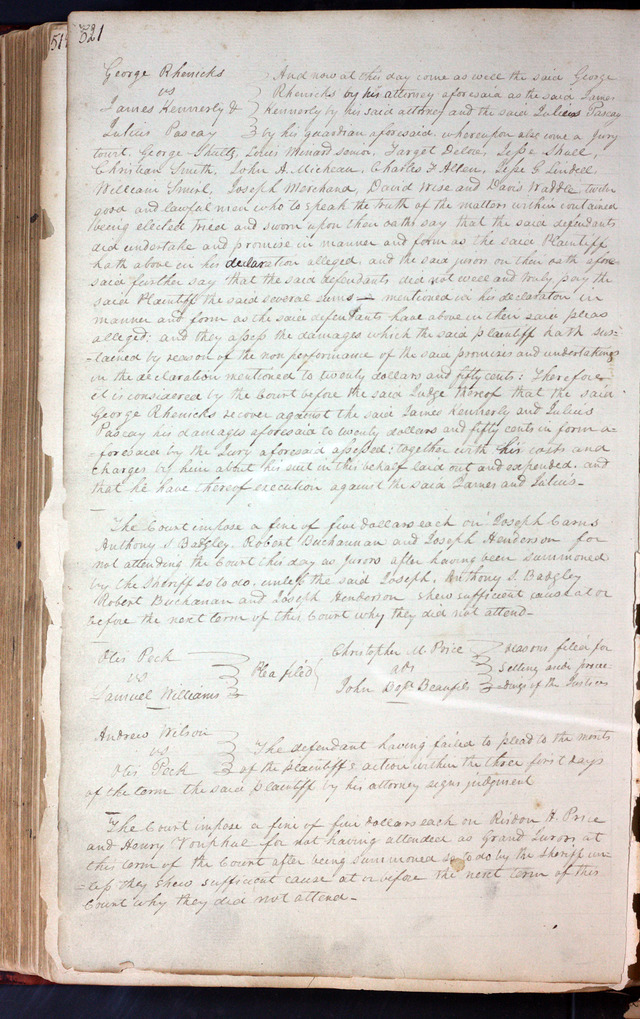 519 521
George Rhenicks } And now at this day come as well the said George
vs } Rhenicks by his attorney aforesaid as the said James
James Kennerly & } Kennerly by his said attorney and the said Julius Pascay
Julius Pascay } by his guardian aforesaid, whereupon also come a Jury
towit, George Shultz, Louis Menard senior, Jesse Skull,
Christian Smith, John A. Micheau, Charles F Allen, Jesse G Lindell
William Smirl, Joseph Merchand, David Wise and Davis Waddle twelve
good and lawful men who to speak the truth of the matters within contained
being elected tried and sworn upon their oaths say that the said defendants
did undertake and promise in manner and form as the said Plaintiff
hath above in his declaration alleged, and the said jurors on their oath afore
said further say that the said defendants did not well and truly pay the
said Plaintiff the said several sums — mentioned in his declaration in
manner and form as the said defendants have above in their said pleas
alleged: and they assess the damages which the said plaintiff hath sus-
=tained by reason of the non performance of the said promises and undertakings
in the declaration mentioned to twenty dollars and fifty cents: Therefore
it is considered by the Court before the said Judge thereof that the said
George Rhenicks recover against the said James Kennerly and Julius
Pascay his damages aforesaid to twenty dollars and fifty cents in form a-
=foresaid by the Jury aforesaid assessed; together with his costs and
charges by him about his suit in this behalf laid out and expended, and
that he have thereof execution against the said James and Julius—
The Court impose a fine of five dollars each on Joseph Carns
Anthony S. Badgley, Robert Buchannan and Joseph Henderson for
not attending the Court this day as Jurors after having been summoned
by the Sheriff so to do, unless the said Joseph, Anthony S. Badgley
Robert Buchanan and Joseph Henderson shew sufficient cause at or
before the next term of this Court why they did not attend—
Otis Peck } Christopher M. Price } reasons filed for
vs } Plea filed { ads } setting aside procee
Samuel Williams } John Bapt Beaufils } =dings of the Justices
Andrew Wilson }
vs } The defendant having failed to plead to the merits
Otis Peck } of the plaintiffs action within the three first days
of the term the said plaintiff by his attorney signs judgment
The Court impose a fine of five dollars each on Risdon H. Price
and Henry Vonphul for not having attended as Grand Jurors at
this term of the Court after being summoned so to do by the Sheriff un-
=less they shew sufficient cause at or before the next term of this
Court why they did not attend—